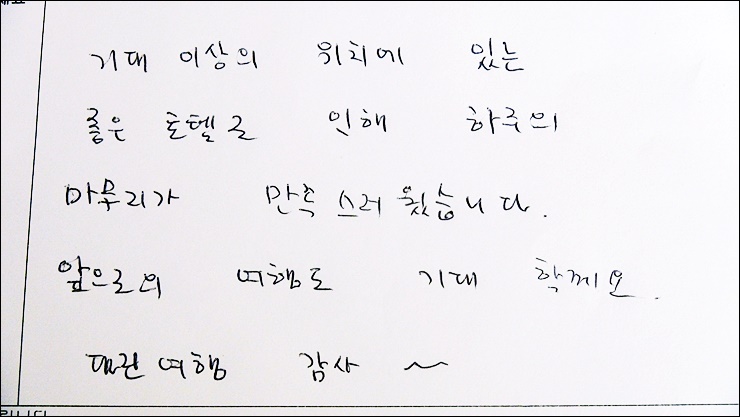 기대 이상의 위치에 있는
좋은 호텔로 인해 하루의
마무리가 만족 스러웠습니다.
앞으로의 여행도 기대 할께요.
여행 감사 ~